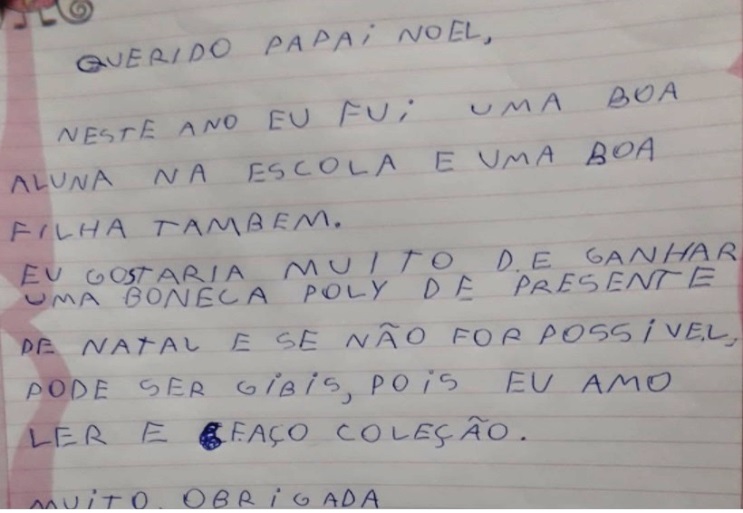 QUERIDO PAPAi NOEL,
NESTE ANO EU FUi UMA BOA
ALUNA NA ESCOLA E UMA BOA
FILHA TAMBEM.
EU GOSTARIA MUITO DE GANHAR
UMA BONECA POLY DE PRESENTE
DE NATAL E SE NÃO FOR POSSÍVEL,
PODE SER GiBiS, POiS EU AMO
LER E FAÇO COLEÇÃO.
MUiTO OBRiGADA